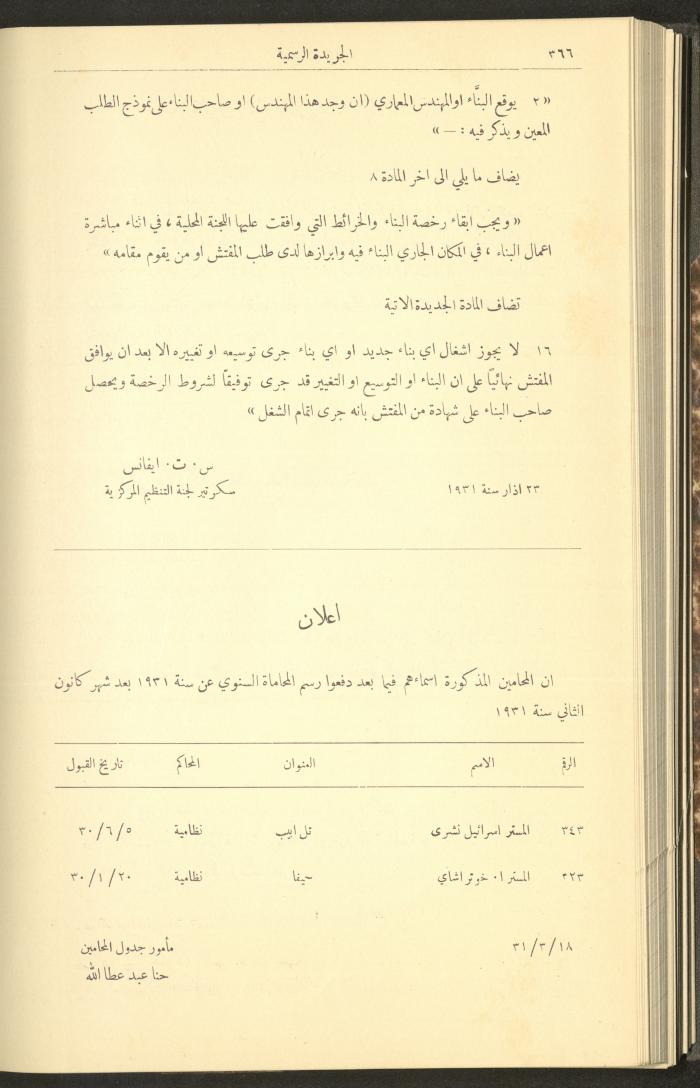 ٣٦٦
الجريدة الرسمية
«٢ يوقع البنَّاء او المهندس المعماري (ان وجد هذا المهندس) او صاحب البناء على نموذج الطلب
المعين ويذكر فيه : — »
يضاف ما يلي الى اخر المادة ٨
« ويجب ابقاء رخصة البناء والخرائط التي وافقت عليها اللجنة المحلية ، في اثناء مباشرة
اعمال البناء ، في المكان الجاري البناء فيه وابرازها لدى طلب المفتش او من يقوم مقامه »
تضاف المادة الجديدة الاتية
١٦ لا يجوز اشغال اي بناء جديد او اي بناء جرى توسيعه او تغييره الا بعد ان يوافق
المفتش نهائيًا على ان البناء او التوسيع او التغيير قد جرى توفيقًا لشروط الرخصة ويحصل
صاحب البناء على شهادة من المفتش بانه جرى اتمام الشغل »
س٠ ت٠ ايفانس
٢٣ اذار سنة ١٩٣١ سكرتير لجنة التنظيم المركزية
اعلان
ان المحامين المذكورة اسماءهم فيما بعد دفعوا رسم المحاماة السنوي عن سنة ١٩٣١ بعد شهر كانون
الثاني سنة ١٩٣١
الرقم الاسم العنوان المحاكم تاريخ القبول
٣٤٣ المستر اسرائيل نشرى تل ابيب نظامية ٣٠/٦/٥
٣٢٣ المستر ا٠ خوتر اشاي حيفا نظامية ٣٠/١/٢٠
٣١/٣/١٨ مأمور جدول المحامين
حنا عبد عطا الله